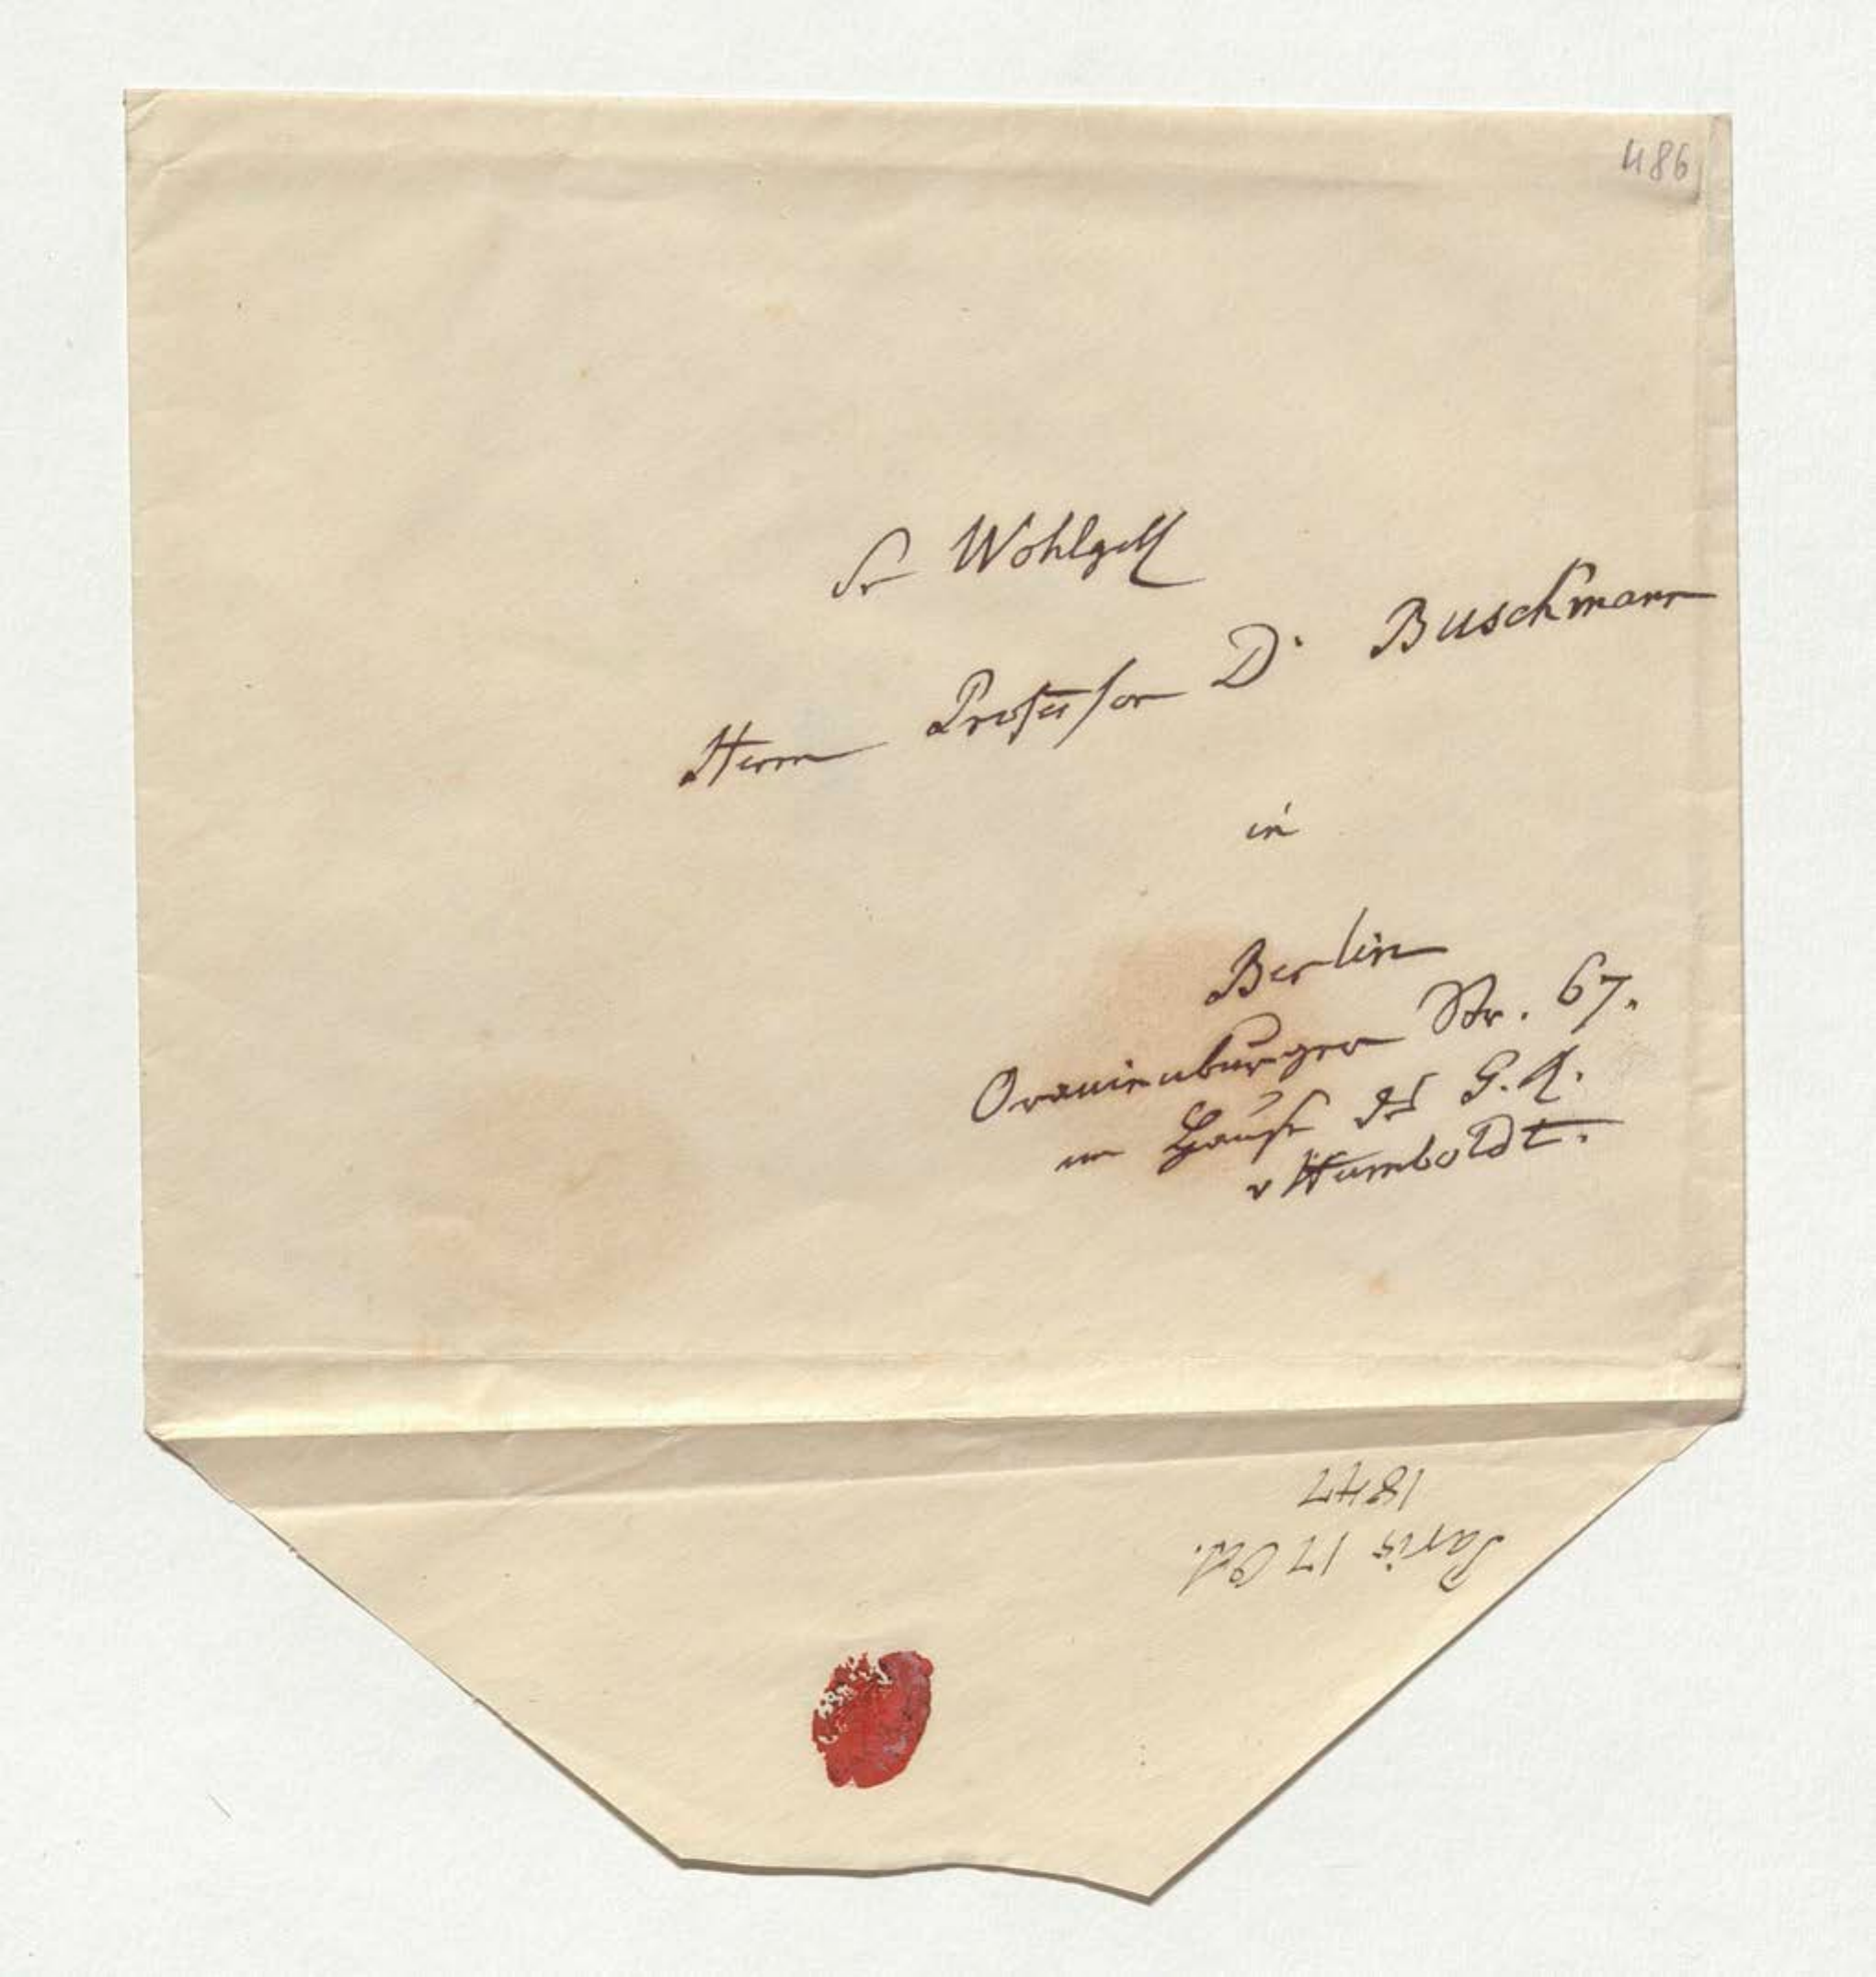 486
Sr Wohlgeb
Herrn Professor Dr Buschmann
in
Berlin
Oranienburger Str. 67.
im Hause des G. R.
v Humboldt.
Paris 17 Oct.
1847